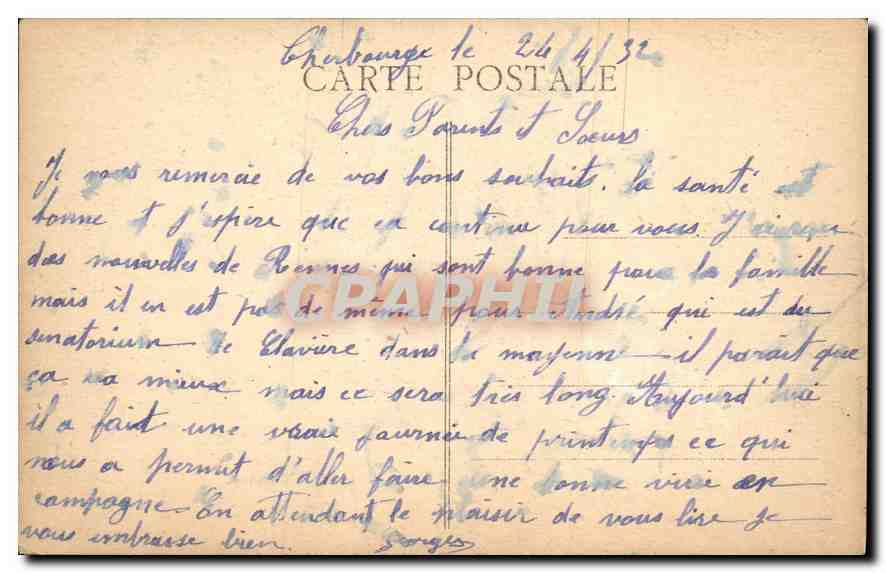 Cherbourg le 24/4/32
CARTE POSTALE
Chers Parents et Sœurs
Je vous remercie de vos bons souhaits. la santé est
bonne et j'espère que ça continue pour vous. J'ai reçu
des nouvelles de Rennes qui sont bonne pour la famille
CPAPHIL
mais il en est pas de même pour André qui est au
sanatorium de Clavière dans la mayenne il parait que
ça va mieux mais ce sera très long. Aujourd'hui
il a fait une vraie journée de printemps ce qui
nous a permit d'aller faire une bonne virée en
campagne. En attendant le plaisir de vous lire je
vous embrasse bien. Gorges